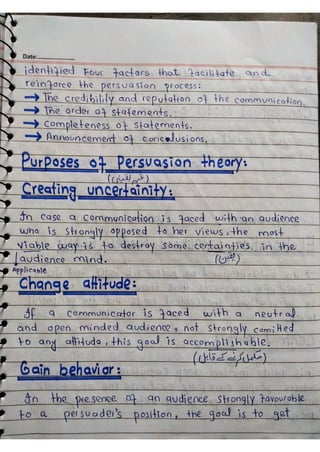 Date:
identified Four factors that facilitate and
reinforce the persuasion process:
→ The credibility and reputation of the communication.
→ The order of statements.
→ Completeness of statements.
→ Announcement of conculusions.
Purposes of Persuasion theory:
(غیر یقینی)
Creating uncertainity:
In case a communication is faced with an audience
who is strongly opposed to her views, the most
viable way is to destroy some certainties in the
audience mind. (یقین)
Applicable
Change attitude:
If a communicator is faced with a neutral
and open minded audience, not strongly comitted
to any attitude, this goal is accomplishable.
(مکمل کرنے کے قابل)
Gain behavior:
In the presence of an audience strongly favourable
to a persuader's position, the goal is to get